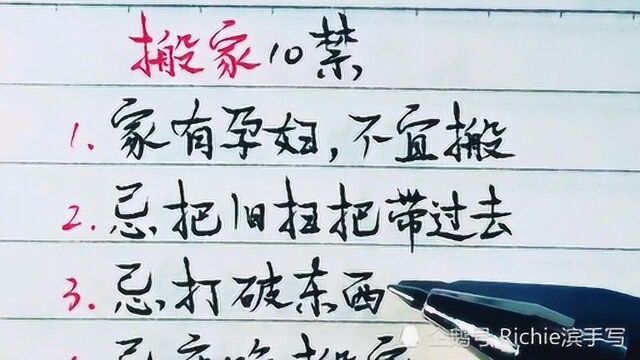 搬家10禁
1. 家有孕妇,不宜搬
2. 忌把旧扫把带过去
3. 忌打破东西
企鹅号 Richie滨手写